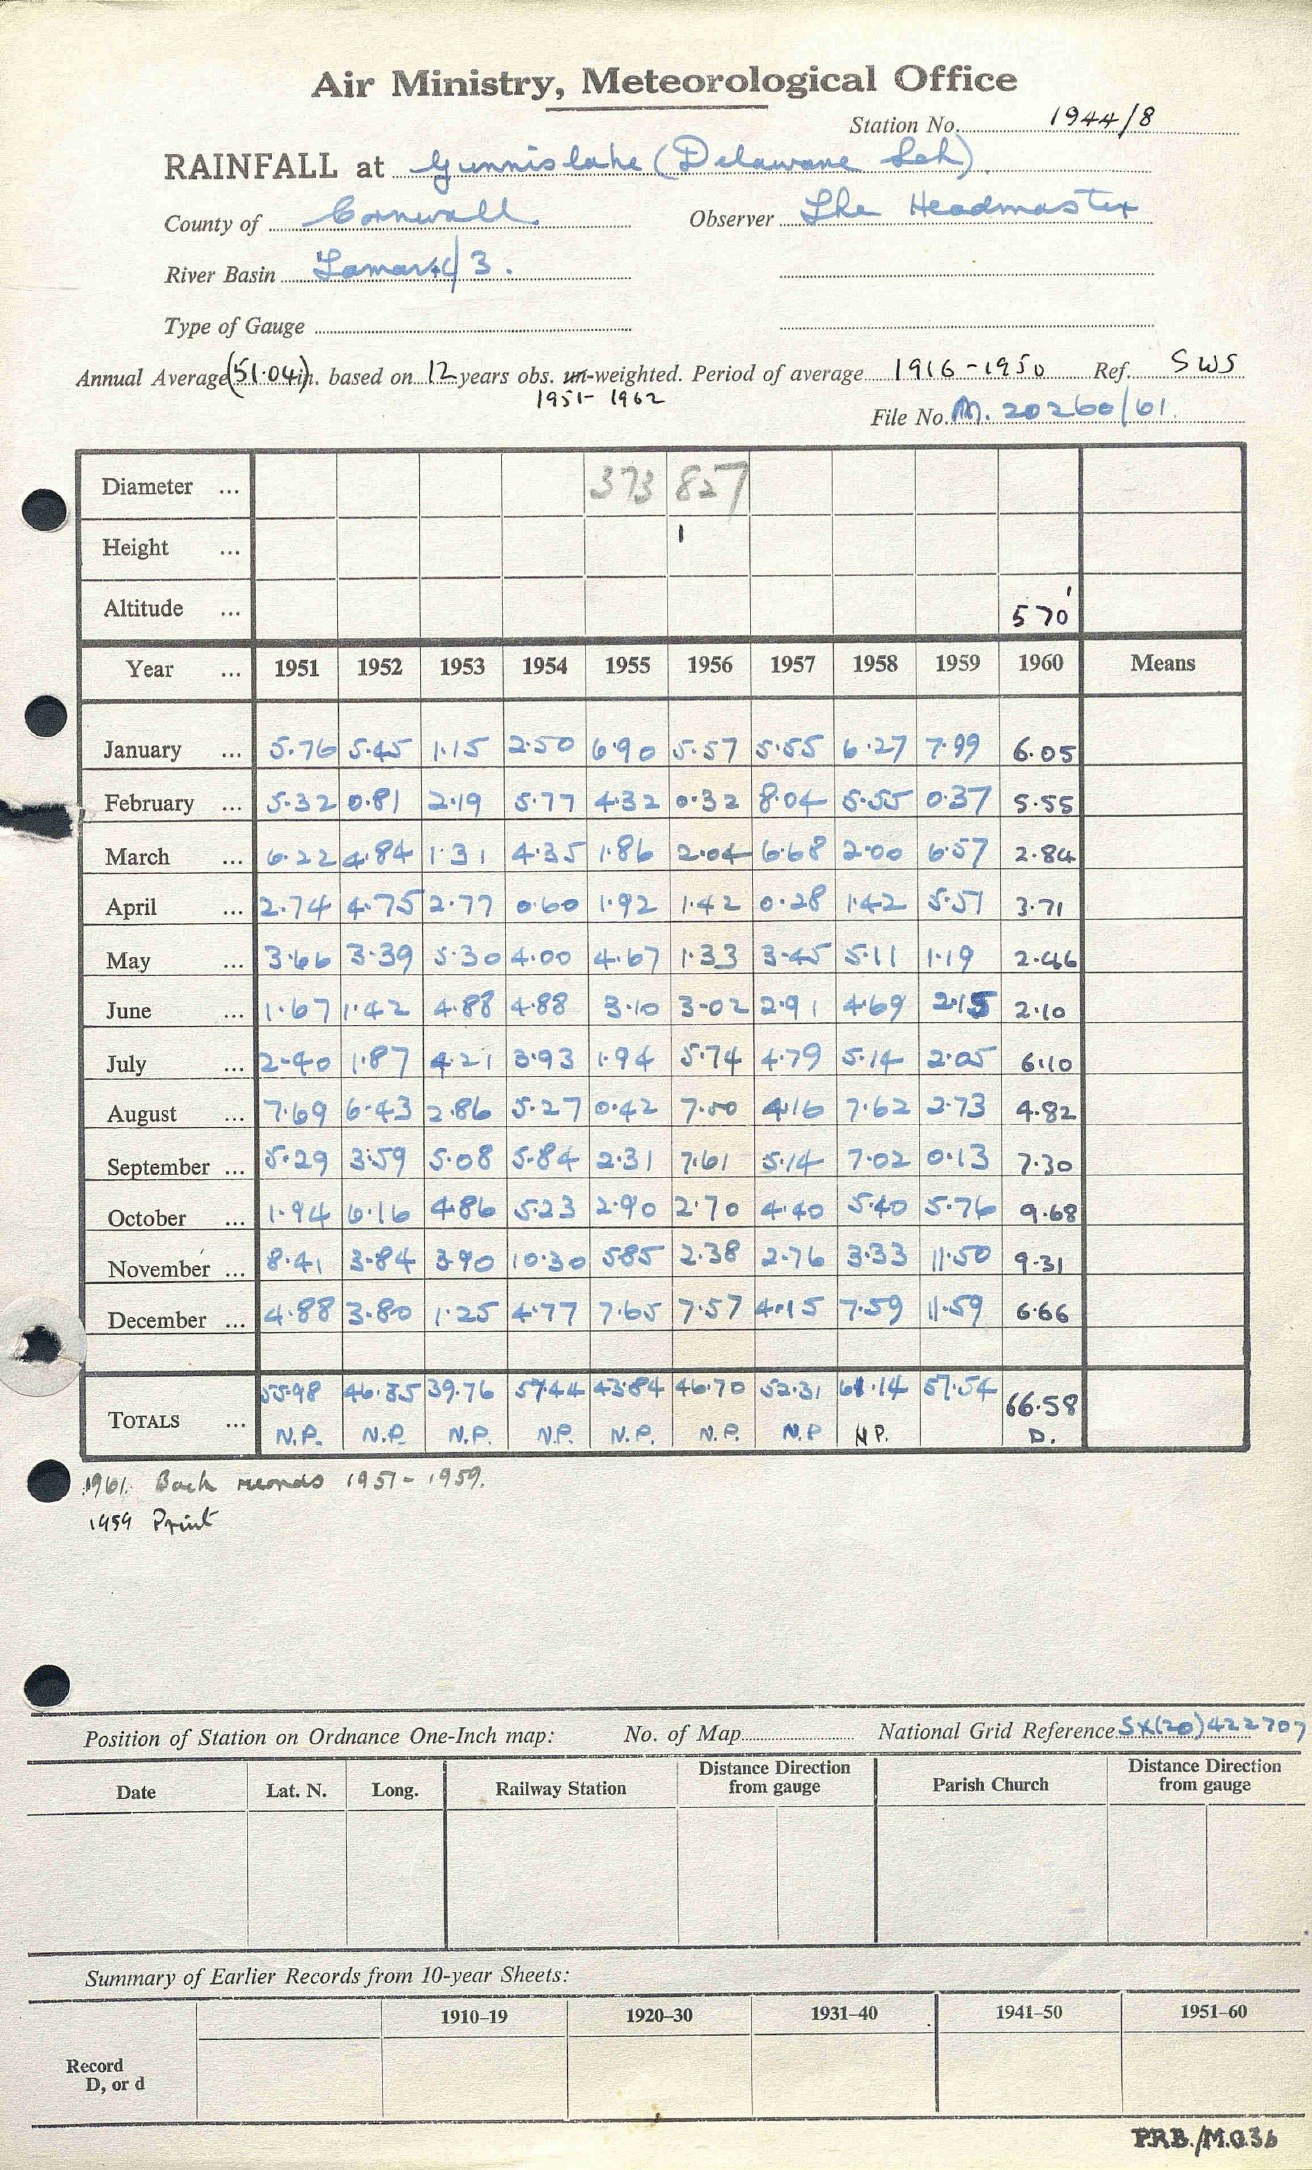 Air Ministry, Meteorological Office
Station No. 1944/8
RAINFALL at Gunnislake (Delaware Sch)
County of Cornwall. Observer The Headmaster
River Basin Tamar 3.
Type of Gauge
Annual Average (51.04) in. based on 12 years obs. un-weighted. Period of average 1916-1950 Ref. SWS
1951-1962
File No. M. 20260/61.
Diameter ... 373 827
Height ... 1
Altitude ... 570'
Year ... 1951 1952 1953 1954 1955 1956 1957 1958 1959 1960 Means
January ... 5.76 5.45 1.15 2.50 6.90 5.57 5.55 6.27 7.99 6.05
February ... 5.32 0.81 2.19 5.77 4.32 0.32 8.04 5.55 0.37 5.55
March ... 6.22 4.84 1.31 4.35 1.86 2.04 6.68 2.00 6.57 2.84
April ... 2.74 4.75 2.77 0.60 1.92 1.42 0.28 1.42 5.51 3.71
May ... 3.66 3.39 5.30 4.00 4.67 1.33 3.45 5.11 1.19 2.46
June ... 1.67 1.42 4.88 4.88 3.10 3.02 2.91 4.69 2.15 2.10
July ... 2.40 1.87 4.21 3.93 1.94 5.74 4.79 5.14 2.05 6.10
August ... 7.69 6.43 2.86 5.27 0.42 7.00 4.16 7.62 2.73 4.82
September ... 5.29 3.59 5.08 5.84 2.31 7.61 5.14 7.02 0.13 7.30
October ... 1.94 6.16 4.86 5.23 2.90 2.70 4.40 5.40 5.76 9.68
November ... 8.41 3.84 3.90 10.30 5.85 2.38 2.76 3.33 11.50 9.31
December ... 4.88 3.80 1.25 4.77 7.65 7.57 4.15 7.59 11.59 6.66
TOTALS ... 55.98 46.35 39.76 57.44 43.84 46.70 52.31 61.14 57.54 66.58
N.P. N.P. N.P. N.P. N.P. N.P. N.P N.P. D.
1961. Back records 1951-1959.
1959 Print
Position of Station on Ordnance One-Inch map: No. of Map National Grid Reference SX(20)422707
Date Lat. N. Long. Railway Station Distance Direction from gauge Parish Church Distance Direction from gauge
Summary of Earlier Records from 10-year Sheets:
1910–19 1920–30 1931–40 1941–50 1951–60
Record
D, or d
P.R.B./M.O.36